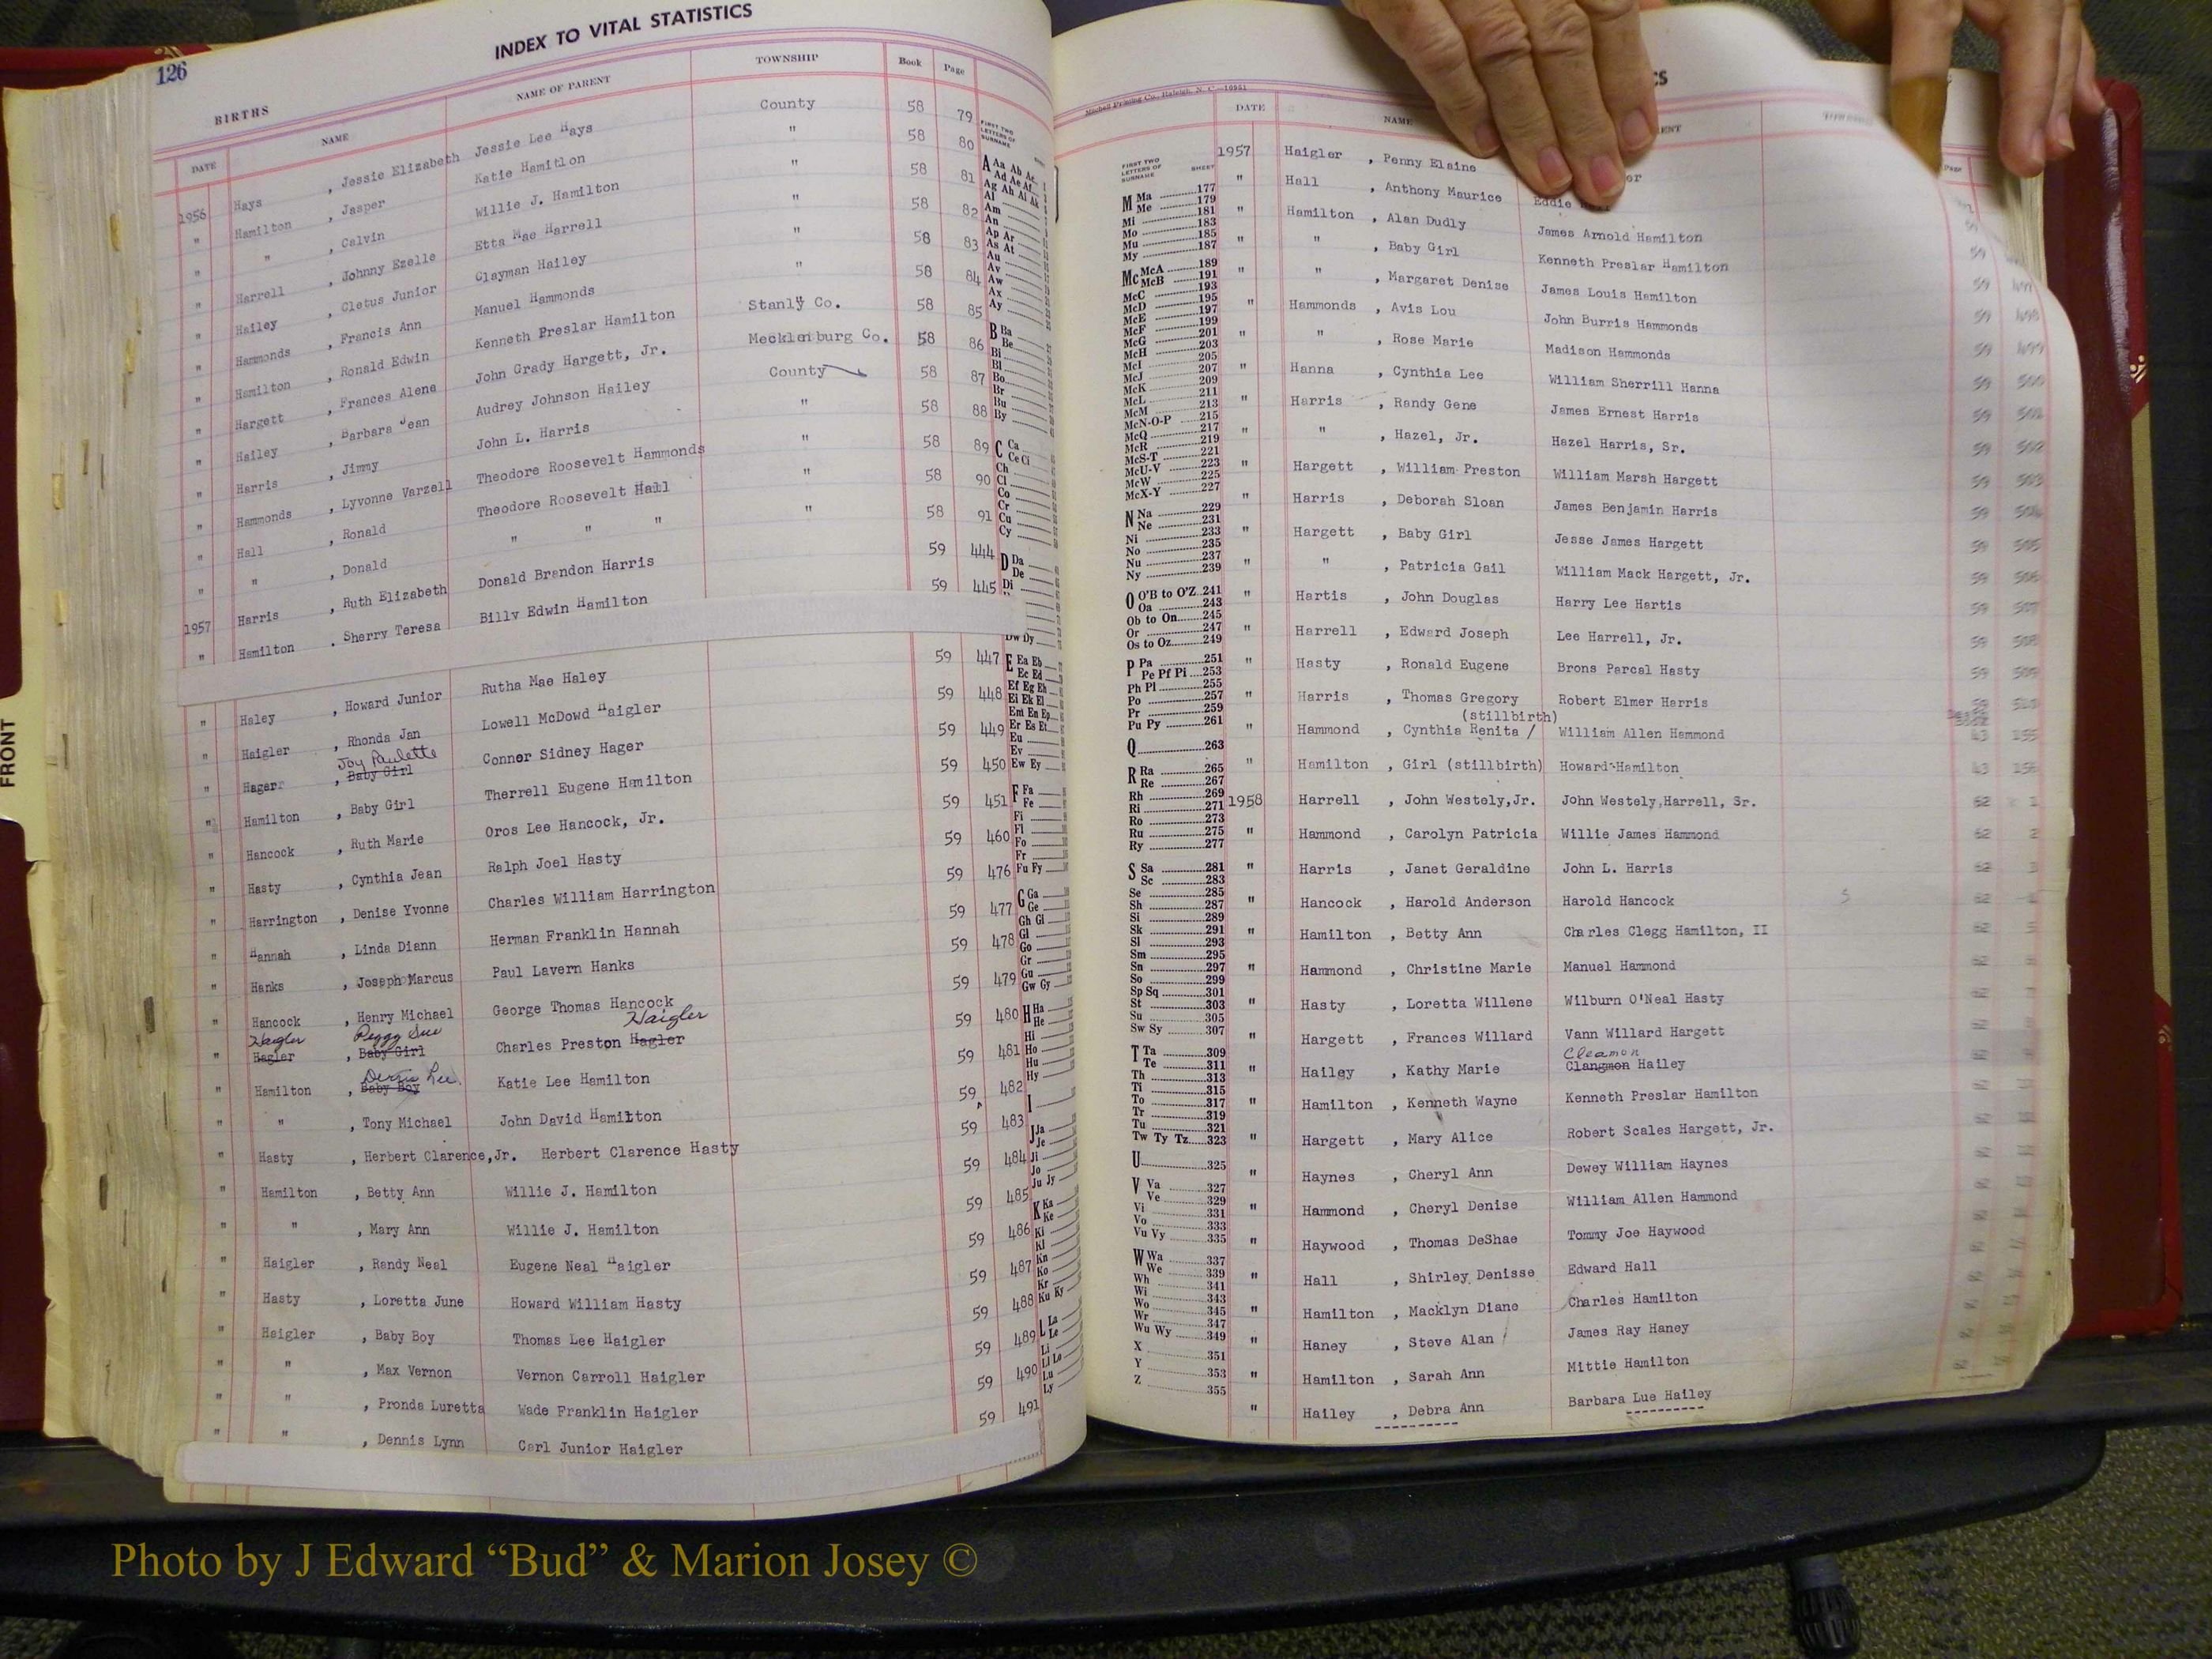 126
INDEX TO VITAL STATISTICS
BIRTHS
DATE NAME NAME OF PARENT TOWNSHIP Book Page
1956 Hays , Jessie Elizabeth Jessie Lee Hays County 58 79
" Hamilton , Jasper Katie Hamitlon " 58 80
" " , Calvin Willie J. Hamilton " 58 81
" Harrell , Johnny Ezelle Etta Mae Harrell " 58 82
" Hailey , Cletus Junior Clayman Hailey " 58 83
" Hammonds , Francis Ann Manuel Hammonds " 58 84
" Hamilton , Ronald Edwin Kenneth Preslar Hamilton Stanly Co. 58 85
" Hargett , Frances Alene John Grady Hargett, Jr. Mecklenburg Co. 58 86
" Hailey , Barbara Jean Audrey Johnson Hailey County 58 87
" Harris , Jimmy John L. Harris " 58 88
" Hammonds , Lyvonne Varzell Theodore Roosevelt Hammonds " 58 89
" Hall , Ronald Theodore Roosevelt Hall " 58 90
" " , Donald " " " 58 91
1957 Harris , Ruth Elizabeth Donald Brandon Harris 59 444
" Hamilton . Sherry Teresa Billy Edwin Hamilton 59 445
" Haley , Howard Junior Rutha Mae Haley 59 447
" Haigler , Rhonda Jan Lowell McDowd Haigler 59 448
Joy Paulette
" Hager , Baby Girl Connor Sidney Hager 59 449
" Hamilton , Baby Girl Therrell Eugene Hamilton 59 450
" Hancock , Ruth Marie Oros Lee Hancock, Jr. 59 451
" Hasty , Cynthia Jean Ralph Joel Hasty 59 460
" Harrington , Denise Yvonne Charles William Harrington 59 476
" Hannah , Linda Diann Herman Franklin Hannah 59 477
" Hanks , Joseph Marcus Paul Lavern Hanks 59 478
" Hancock , Henry Michael George Thomas Hancock 59 479
Haigler Peggy Sue Haigler
" Hagler , Baby Girl Charles Preston Hagler 59 480
" Hamilton , Baby Boy Katie Lee Hamilton 59 481
" " , Tony Michael John David Hamilton 59 482
" Hasty , Herbert Clarence,Jr. Herbert Clarence Hasty 59 483
" Hamilton , Betty Ann Willie J. Hamilton 59 484
" " , Mary Ann Willie J. Hamilton 59 485
" Haigler , Randy Neal Eugene Neal Haigler 59 486
" Hasty , Loretta June Howard William Hasty 59 487
" Haigler , Baby Boy Thomas Lee Haigler 59 488
" " , Max Vernon Vernon Carroll Haigler 59 489
" " , Pronda Luretta Wade Franklin Haigler 59 490
" " , Dennis Lynn Carl Junior Haigler 59 491
FRONT
FIRST TWO LETTERS OF SURNAME
A Aa Ab Ac
Ad Ae Af
Ag Ah Ai Ak
Al
Am
An
Ap Ar
As At
Au
Av
Aw
Ax
Ay
B Ba
Be
Bi
Bl
Bo
Br
Bu
By
C Ca
Ce Ci
Ch
Cl
Co
Cr
Cu
Cy
D Da
De
Di
Dw Dy
E Ea Eb
Ec Ed
Ef Eg Eh
Ei Ek El
Em En Ep
Er Es Et
Eu
Ev
Ew Ey
F Fa
Fe
Fi
Fl
Fo
Fr
Fu Fy
G Ga
Ge
Gh Gi
Gl
Go
Gr
Gu
Gw Gy
H Ha
He
Hi
Ho
Hu
Hy
I
J Ja
Je
Ji
Jo
Ju Jy
K Ka
Ke
Ki
Kl
Kn
Ko
Kr
Ku Ky
L La
Le
Li
Ll Lo
Lu
Ly
Mitchell Printing Co., Raleigh, N. C.—10951
FIRST TWO LETTERS OF SURNAME SHEET
M Ma 177
Me 179
Mi 181
Mo 183
Mu 185
My 187
Mc McA 189
McB 191
McC 193
McD 195
McE 197
McF 199
McG 201
McH 203
McI 205
McJ 207
McK 209
McL 211
McM 213
McN-O-P 215
McQ 217
McR 219
McS-T 221
McU-V 223
McW 225
McX-Y 227
N Na 229
Ne 231
Ni 233
No 235
Nu 237
Ny 239
O O'B to O'Z 241
Oa 243
Ob to On 245
Or 247
Os to Oz 249
P Pa 251
Pe Pf Pi 253
Ph Pl 255
Po 257
Pr 259
Pu Py 261
Q 263
R Ra 265
Re 267
Rh 269
Ri 271
Ro 273
Ru 275
Ry 277
S Sa 281
Sc 283
Se 285
Sh 287
Si 289
Sk 291
Sl 293
Sm 295
Sn 297
So 299
Sp Sq 301
St 303
Su 305
Sw Sy 307
T Ta 309
Te 311
Th 313
Ti 315
To 317
Tr 319
Tu 321
Tw Ty Tz 323
U 325
V Va 327
Ve 329
Vi 331
Vo 333
Vu Vy 335
W Wa 337
We 339
Wh 341
Wi 343
Wo 345
Wr 347
Wu Wy 349
X 351
Y 353
Z 355
CS
DATE NAME ENT Page
1957 Haigler , Penny Elaine er
" Hall , Anthony Maurice Eddie
" Hamilton , Alan Dudly James Arnold Hamilton
" " , Baby Girl Kenneth Preslar Hamilton 59
" " , Margaret Denise James Louis Hamilton 59
" Hammonds , Avis Lou John Burris Hammonds 59 498
" " , Rose Marie Madison Hammonds 59 499
" Hanna , Cynthia Lee William Sherrill Hanna 59 500
" Harris , Randy Gene James Ernest Harris 59
" " , Hazel, Jr. Hazel Harris, Sr. 59 502
" Hargett , William Preston William Marsh Hargett 59 503
" Harris , Deborah Sloan James Benjamin Harris 59 504
" Hargett , Baby Girl Jesse James Hargett 59 505
" " , Patricia Gail William Mack Hargett, Jr. 59 506
" Hartis , John Douglas Harry Lee Hartis 59 507
" Harrell , Edward Joseph Lee Harrell, Jr. 59 508
" Hasty , Ronald Eugene Brons Parcal Hasty 59 509
" Harris , Thomas Gregory Robert Elmer Harris 59 510
(stillbirth)
" Hammond , Cynthia Renita / William Allen Hammond 43 155
" Hamilton , Girl (stillbirth) Howard Hamilton 43 156
1958 Harrell , John Westely,Jr. John Westely,Harrell, Sr. 62 1
" Hammond , Carolyn Patricia Willie James Hammond 62 2
" Harris , Janet Geraldine John L. Harris 62 3
" Hancock , Harold Anderson Harold Hancock S 62
" Hamilton , Betty Ann Charles Clegg Hamilton, II 62 5
" Hammond , Christine Marie Manuel Hammond 62
" Hasty , Loretta Willene Wilburn O'Neal Hasty
" Hargett , Frances Willard Vann Willard Hargett
Cleamon
" Hailey , Kathy Marie Clangmon Hailey
" Hamilton , Kenneth Wayne Kenneth Preslar Hamilton
" Hargett , Mary Alice Robert Scales Hargett, Jr.
" Haynes , Cheryl Ann Dewey William Haynes
" Hammond , Cheryl Denise William Allen Hammond
" Haywood , Thomas DeShae Tommy Joe Haywood
" Hall , Shirley Denisse Edward Hall
" Hamilton , Macklyn Diane Charles Hamilton
" Haney , Steve Alan James Ray Haney
" Hamilton , Sarah Ann Mittie Hamilton
" Hailey , Debra Ann Barbara Lue Hailey
Photo by J Edward “Bud” & Marion Josey ©